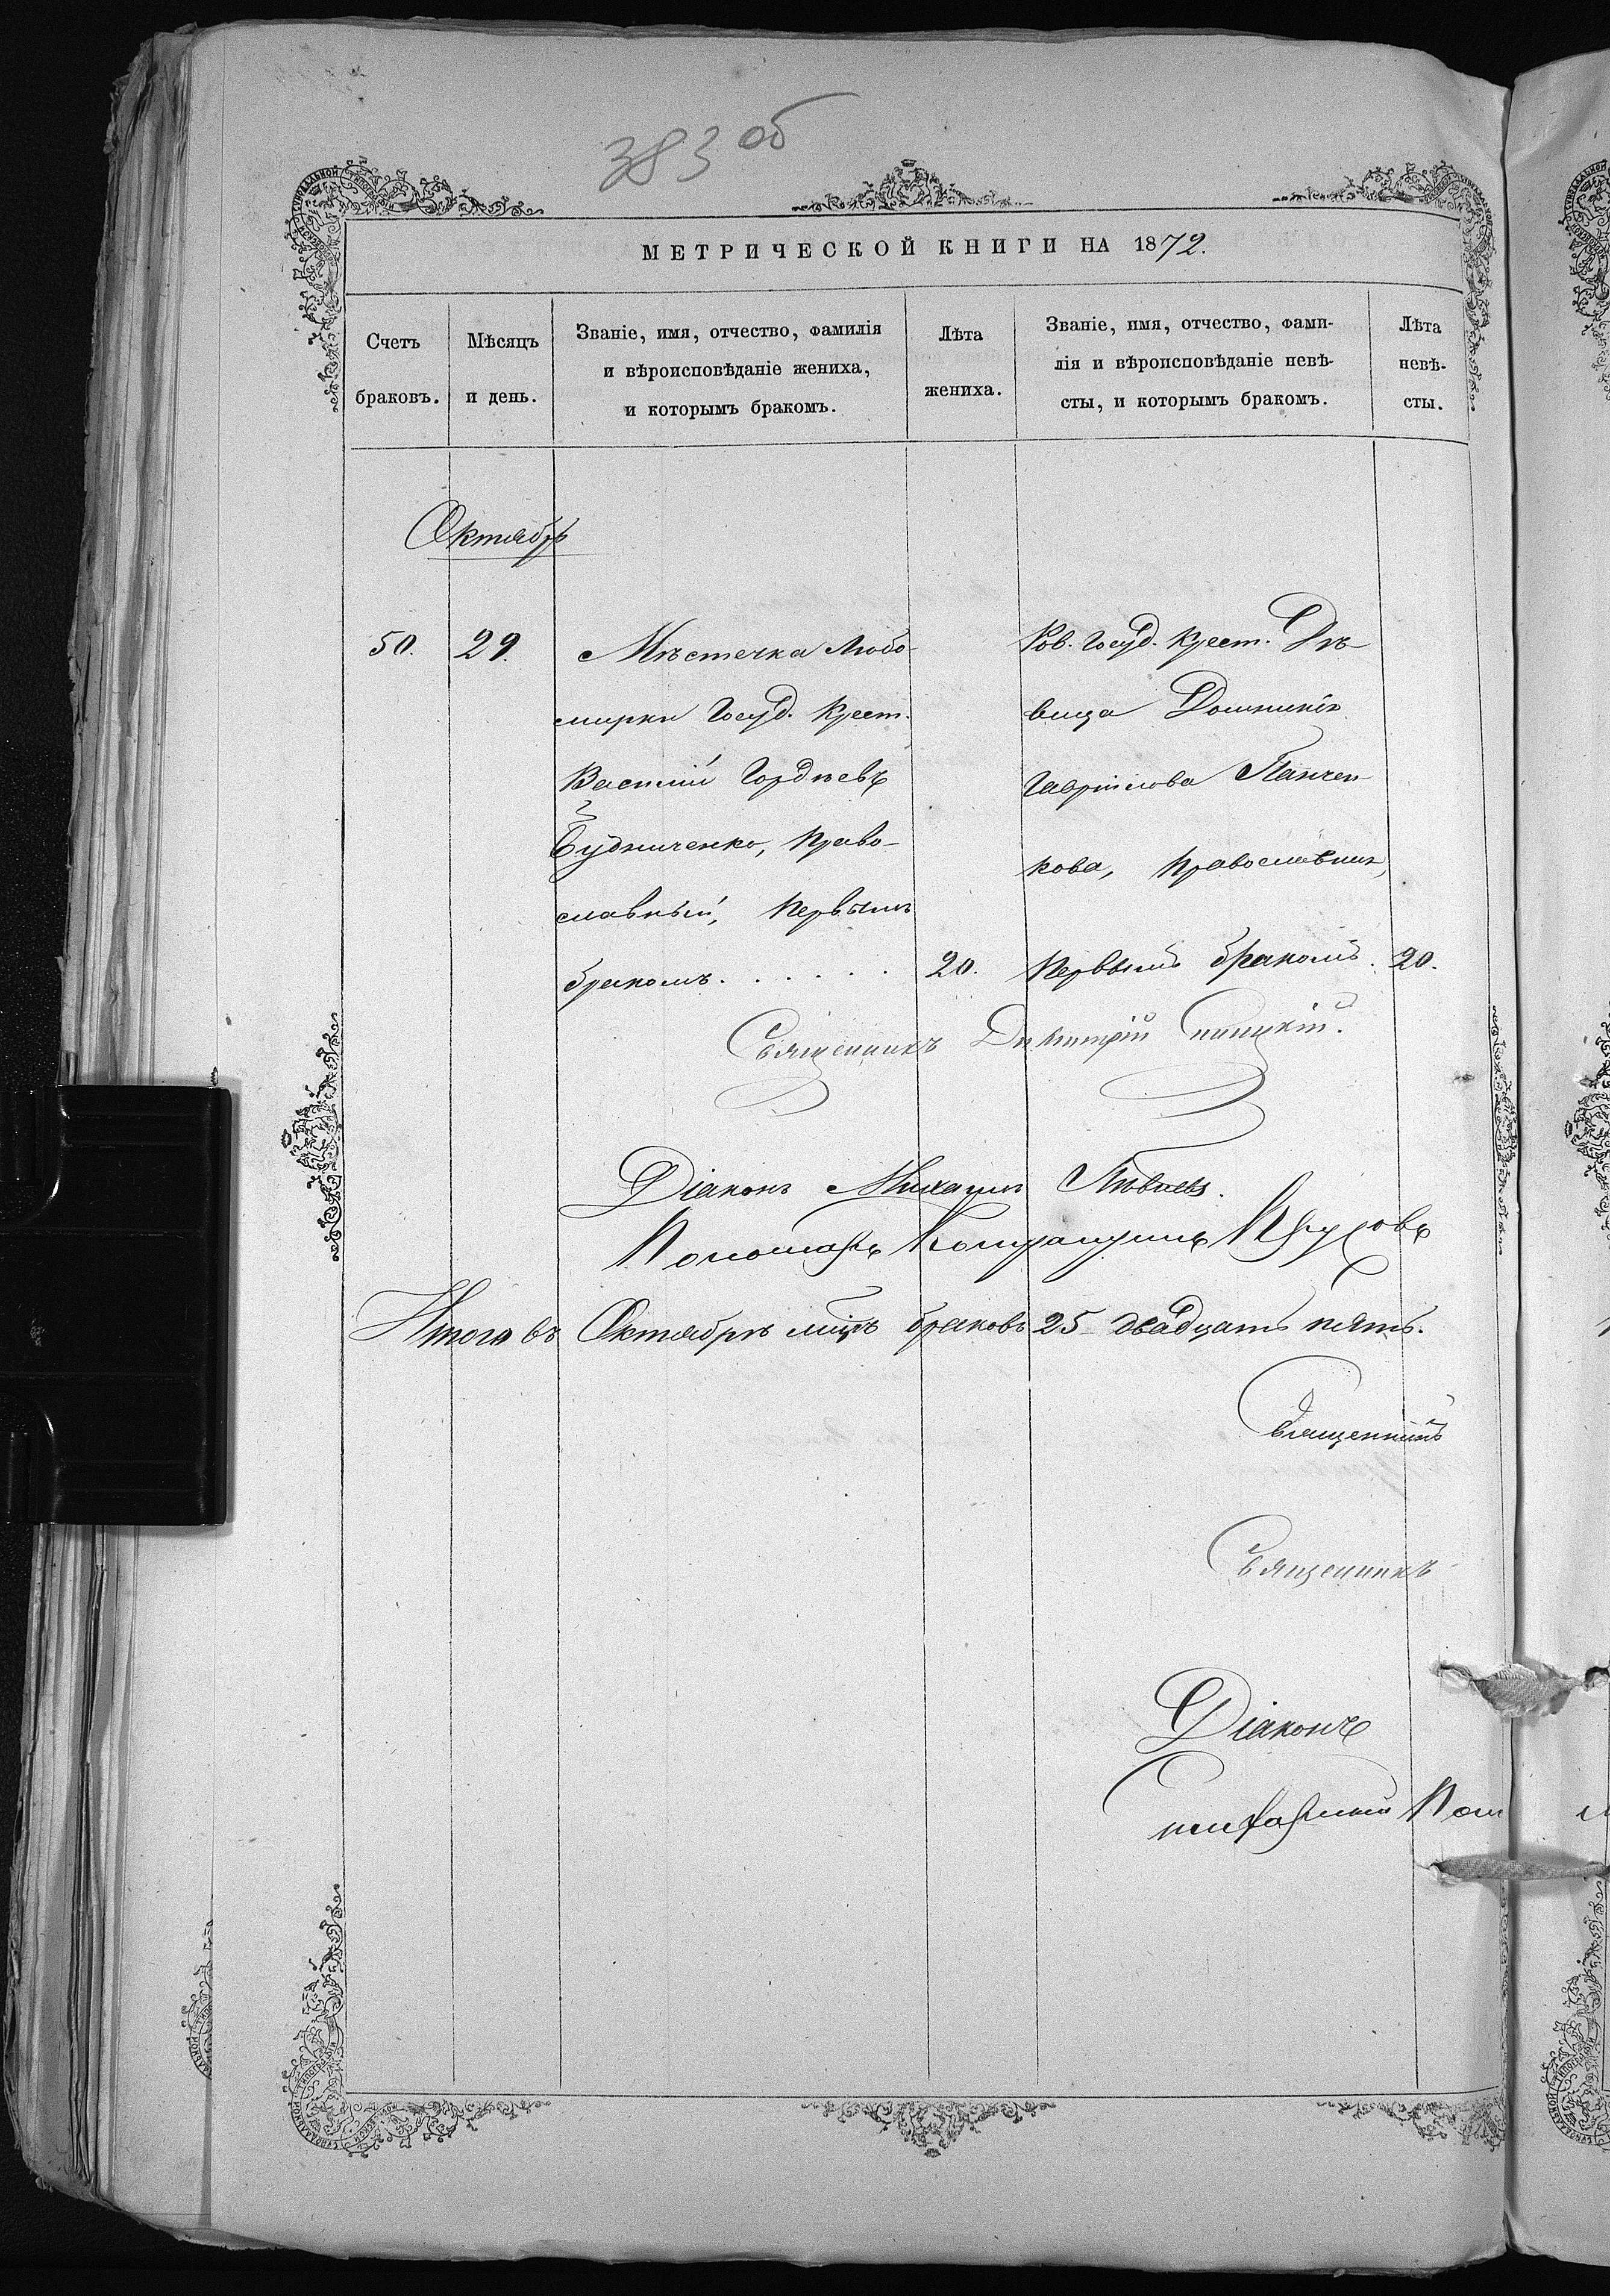 383 об
МЕТРИЧЕСКОЙ КНИГИ НА 1872.
Счетъ браковъ.
Мѣсяцъ и день.
Званіе, имя, отчество, фамилія
и вѣроисповѣданіе жениха,
и которымъ бракомъ.
Лѣта жениха.
Званіе, имя, отчество, фами-
лія и вѣроисповѣданіе невѣ-
сты, и которымъ бракомъ.
Лѣта невѣ-
сты.
Октябрь
50.
29.
Мѣстечка Любо-
мирки Госуд. Крест.
Василій Гордѣевъ
Будниченко, Право-
славный, Первымъ
бракомъ . . . . .
20.
Гос. Крест. Дѣ-
вица Домникія
Гавріилова Панчен-
кова, Православная,
Первымъ бракомъ.
20.
Священникъ Димитрій
Діаконъ Михаилъ
Пономарь
Итого въ Октябрѣ мцѣ браковъ 25 двадцать пять.
Священникъ
Священникъ
Діаконъ